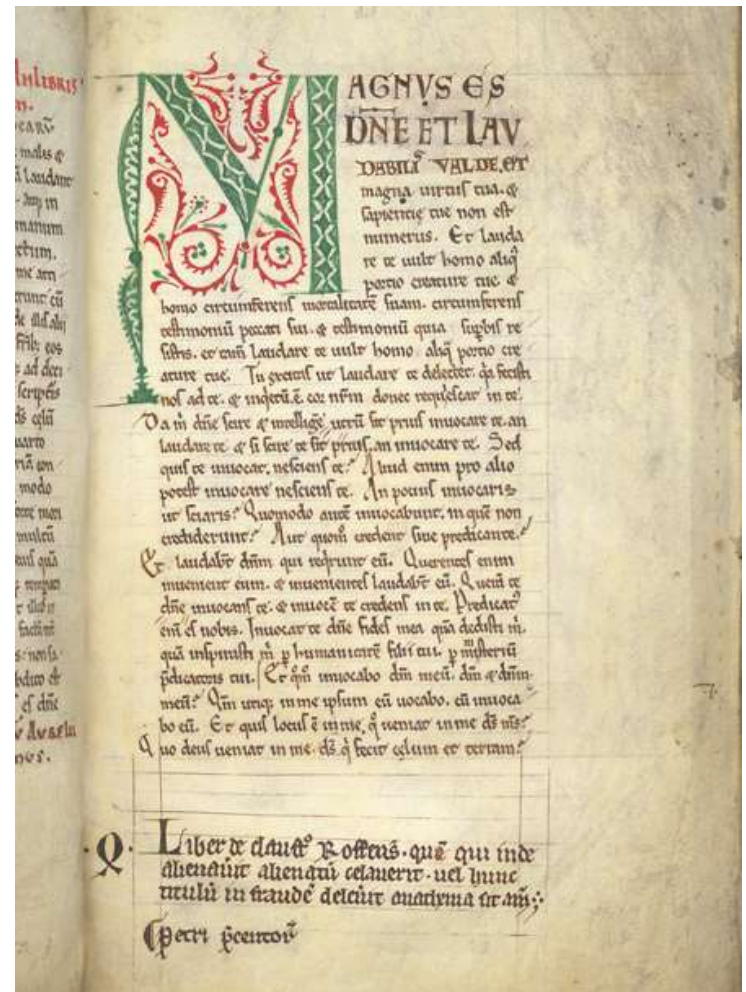 InLIBRIS
males &
laudant
in
manum
me
cū
eos
scriptis
modo
non
dn̄e
MAGNVS ES
DN̄E ET LAV
DABILIˢ VALDE, ET
magna uirtus tua. &
sapientię tue non est
numerus. Et lauda
re te uult homo aliq̄
portio creature tue. &
homo circumferens mortalitatē suam. circumferens
testimoniū peccati sui. & testimoniū quia sup̄bis re
sistis. et tam̄ laudare te uult homo aliq̄ portio cre
ature tue. Tu excitas ut laudare te delectet. q̄a fecisti
nos ad te. & inq̇etū ē cor nr̄m donec req̇escat in te.
Da m̄ dn̄e scire & intelligē utrū sit prius inuocare te. an
laudare te. & si scire te sit prius, an inuocare te. Sed
quis te inuocat, nesciens te? Aliud enim pro alio
potest inuocare nesciens te. An potius inuocaris
ut sciaris? Quomodo autē inuocabunt, in quē non
crediderunt? Aut quom̊ credent sine predicante.
Et laudabt̄ dn̄m qui req̇runt eū. Querentes enim
inuenient eum. & inuenientes laudabt̄ eū. Querā te
dn̄e inuocans te. & inuocē te credens in te. Predicatᵘˢ
eni͂ es nobis. Inuocat te dn̄e fides mea quā dedisti m̄.
quā inspirasti m̄ p̱ humanitatē filii tui. p̱ misteriū
p̄dicatoris tui. Et qm̊ inuocabo dm̄ meū. dm̄ & dn̄m
meū? Qm̄ utiq; in me ipsum eū uocabo, cū inuoca
bo eū. Et quis locus ē in me, q̊ ueniat in me ds̄ ms̄?
Quo deus ueniat in me. ds̄ q̇ fecit cęlum et terram?
·Q· Liber de claustº Roffens̄. quē qui inde
alienauīt alienatū celauerit. uel hunc
titulū in fraudē deleūit anathema sit. am̄.
Petri p̄centorˢ